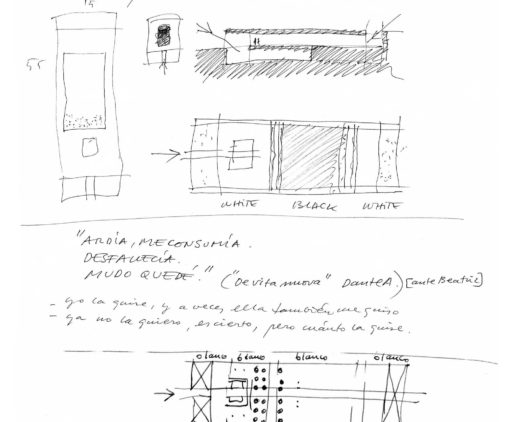 15
55
WHITE BLACK WHITE
"ARDÍA, ME CONSUMÍA.
DESFALLECÍA.
MUDO QUEDÉ." ("De vita nuova" Dante A.) [ante Beatriz]
- yo la quise, y a veces ella también me quiso
- ya no la quiero, es cierto, pero cuánto la quise.
blanco blanco blanco blanco